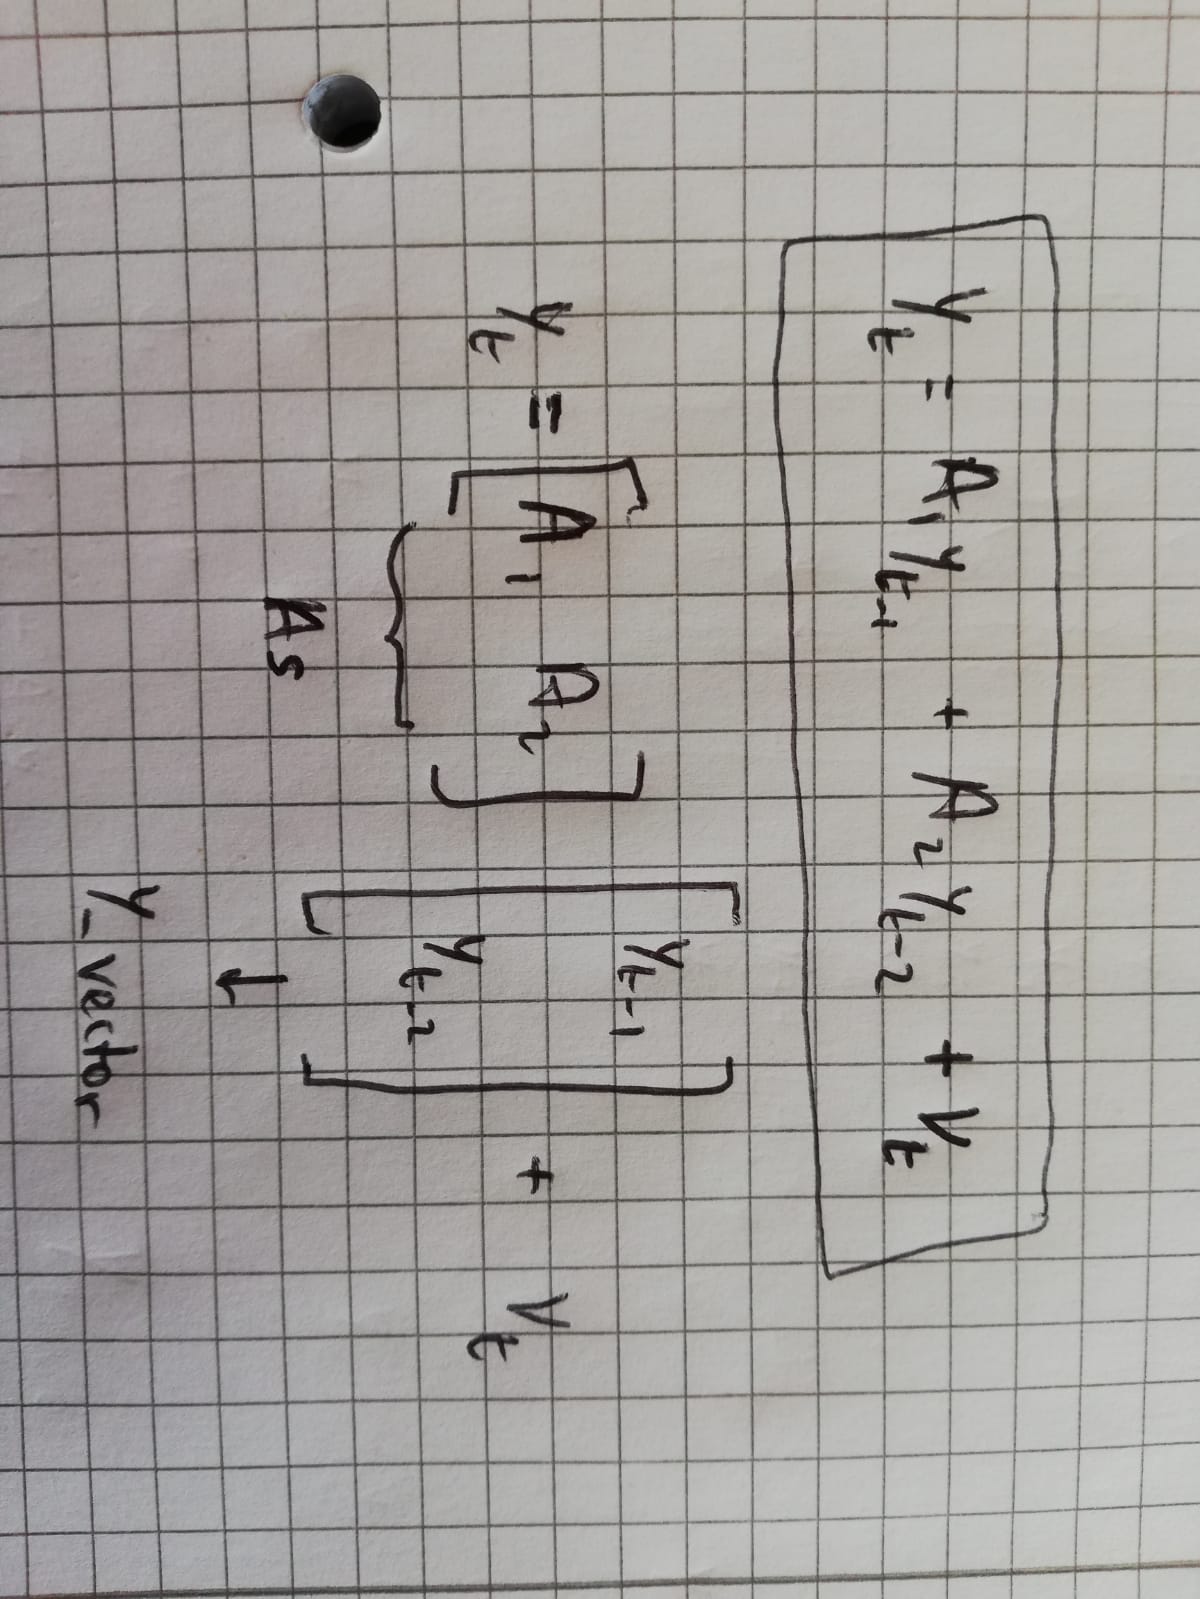 y_t = A_1 y_{t-1} + A_2 y_{t-2} + V_t
y_t = [A_1 A_2] [y_{t-1} y_{t-2}] + V_t
As
y_vector